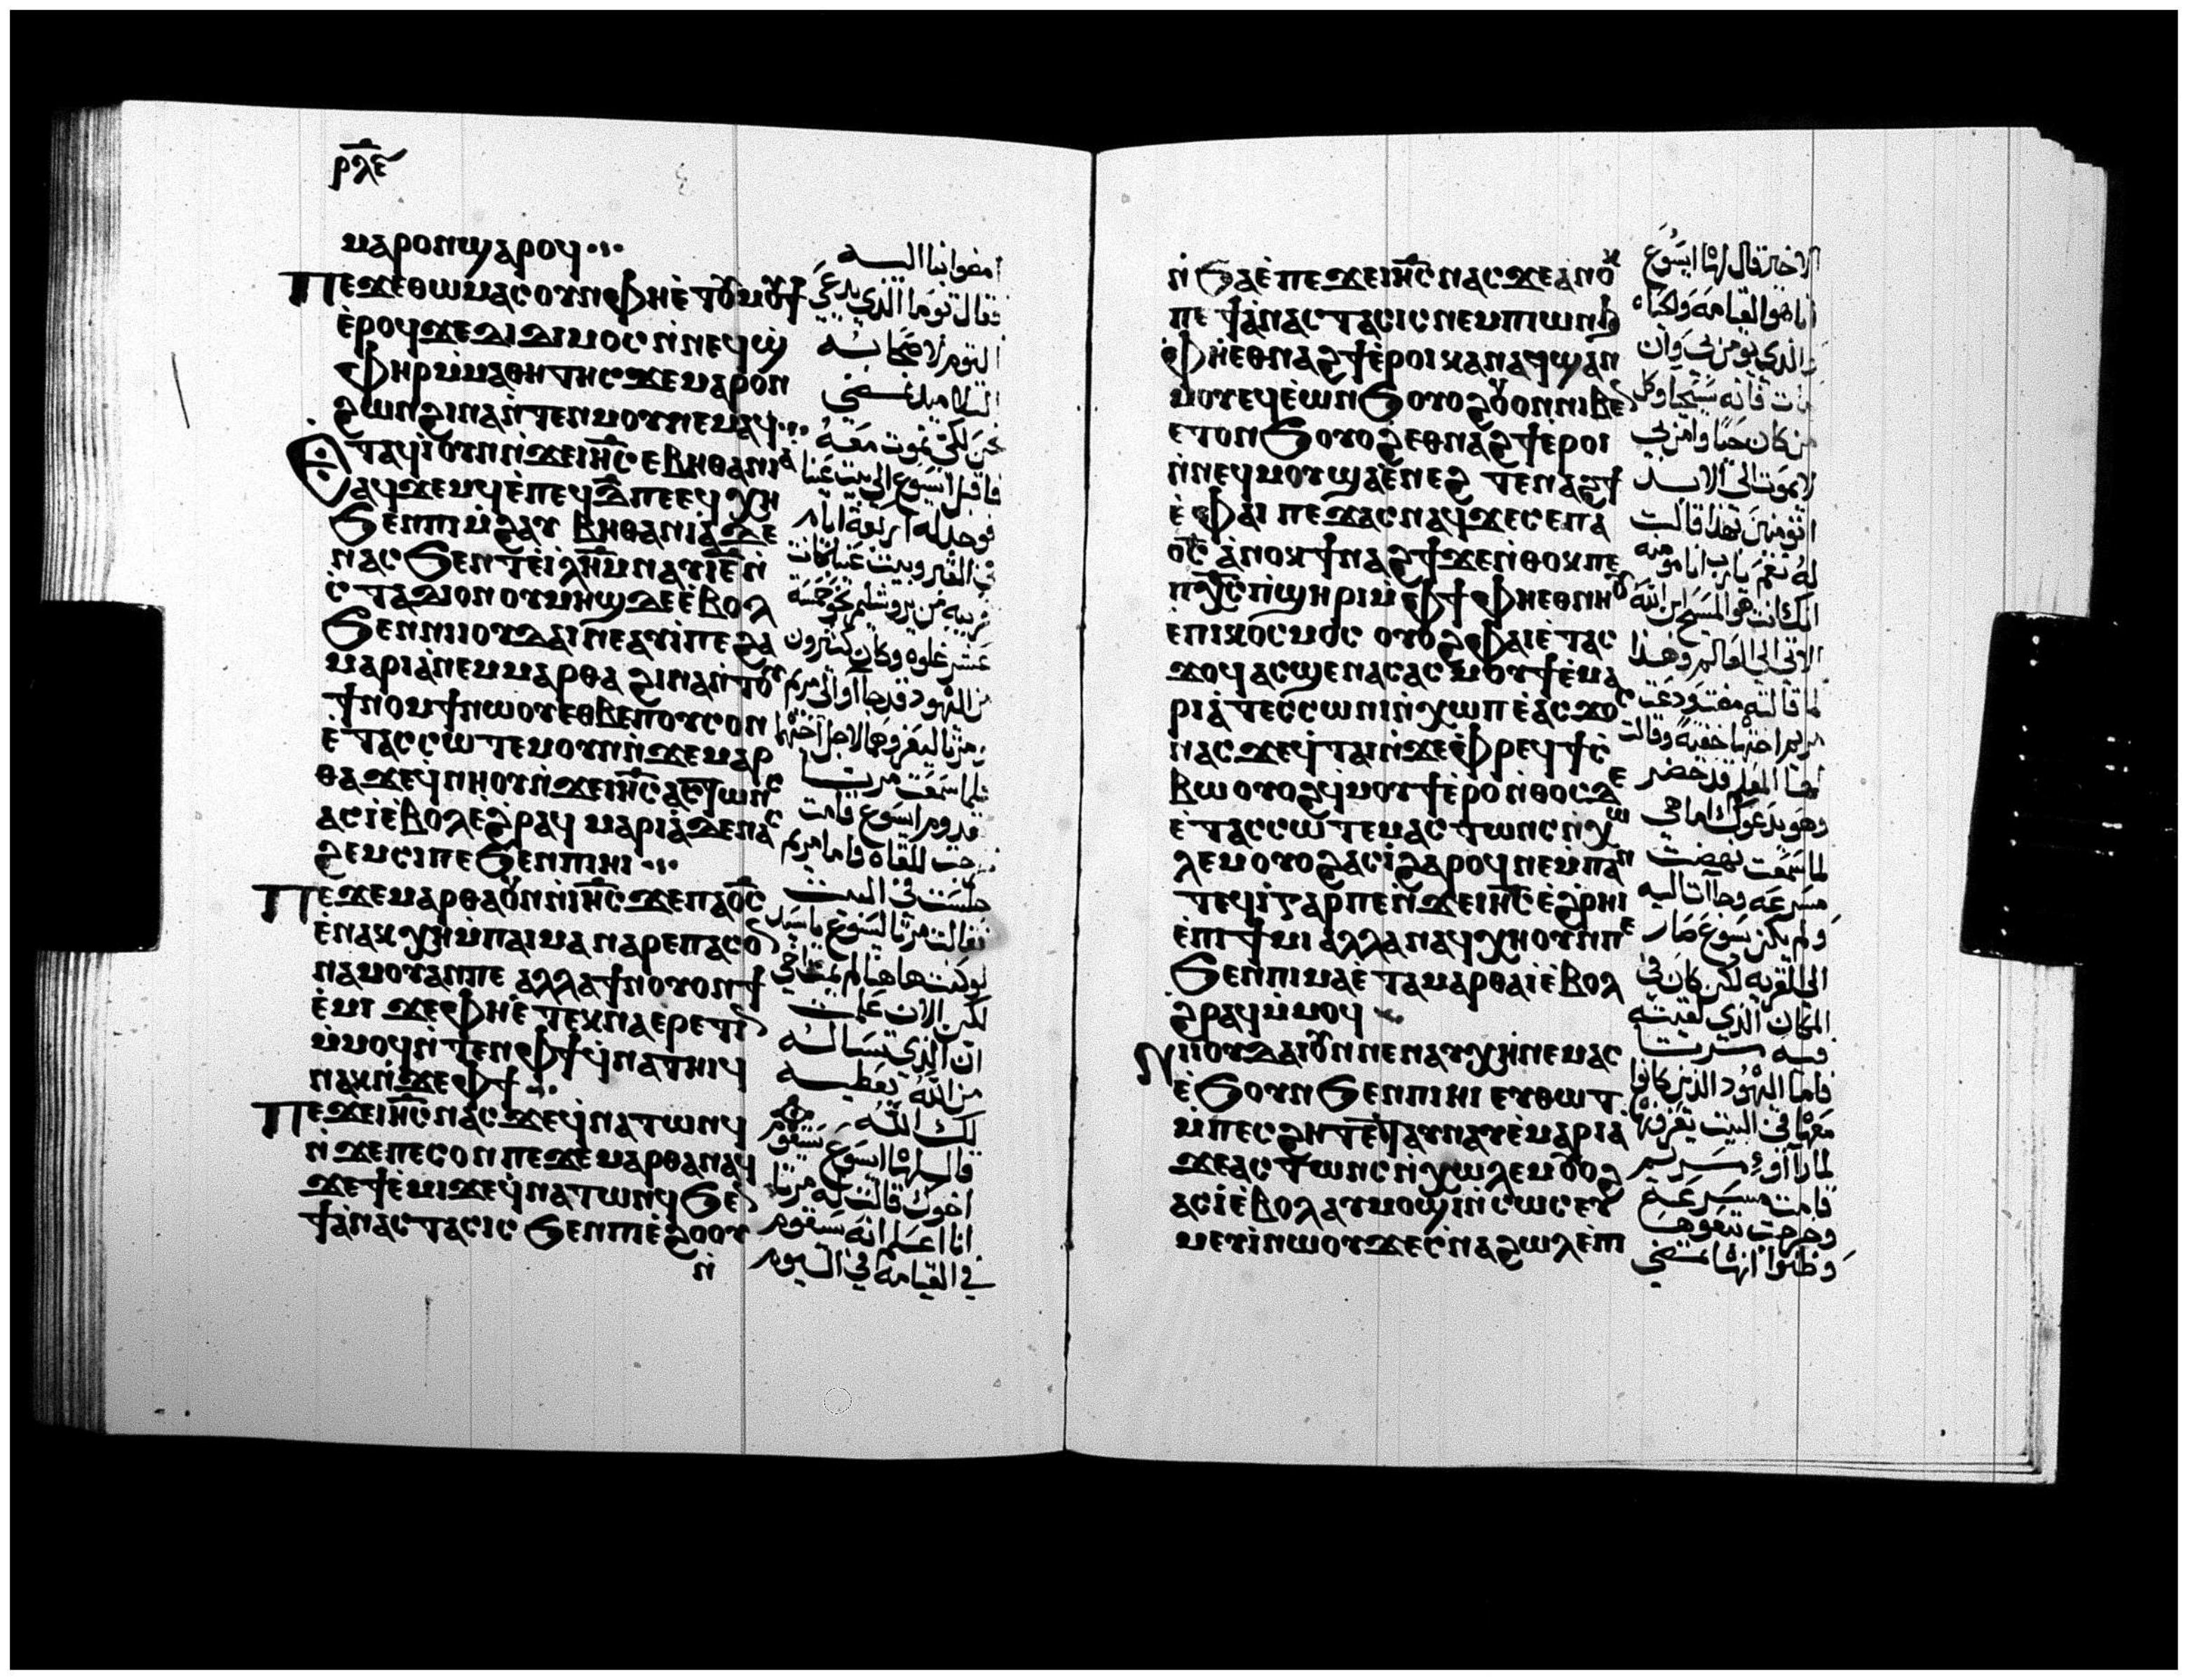 ⲣⲗⲉ
ⲙⲁⲣⲟⲛϣⲁⲣⲟϥ
ⲡⲉϫⲉⲑⲱⲙⲁⲥⲟⲩⲛⲫⲏⲉ̀ⲧⲟⲩⲙⲟⲩϯ
ⲉ̀ⲣⲟϥϫⲉⲇⲓⲇⲓⲙⲟⲥⲛ̀ⲛⲉϥϣ
ⲫⲏⲣⲙ̀ⲙⲁⲑⲏⲧⲏⲥϫⲉⲙⲁⲣⲟⲛ
ϩⲱⲛϩⲓⲛⲁⲛ̀ⲧⲉⲛⲙⲟⲩⲛⲉⲙⲁϥ
ⲉⲧⲁϥⲓ̀ⲟⲩⲛⲛ̀ϫⲉⲓⲏ̅ⲥⲉⲃⲏⲑⲁⲛⲓⲁ
ⲁϥϫⲉⲙϥⲉ̀ⲡⲉϥⲇ̅ⲡⲉⲉϥⲭⲏ
ϧⲉⲛⲡⲓⲙ̀ϩⲁⲩ ⲃⲏⲑⲁⲛⲓⲁ̀ⲇⲉ
ⲛⲁⲥϧⲉⲛⲧⲉ̀ⲓⲗⲏ̅ⲙⲛⲁⲩⲓ̅ⲉ̅ⲛ̀
ⲥ̀ⲧⲁⲇⲓⲟⲛ ⲟⲩⲙⲏϣⲇⲉⲉ̀ⲃⲟⲗ
ϧⲉⲛⲛⲓⲓⲟⲩⲇⲁⲓⲛⲉⲁⲩⲓ̀ⲡⲉϩⲁ
ⲙⲁⲣⲓⲁ̀ⲛⲉⲙⲙⲁⲣⲑⲁ ϩⲓⲛⲁⲛ̀ⲧⲟⲩ
ϯⲛⲟⲙϯⲛⲱⲟⲩⲉⲑⲃⲉⲡⲟⲩⲥⲟⲛ
ⲉ̀ⲧⲁⲥⲥⲱⲧⲉⲙⲟⲩⲛⲛ̀ϫⲉⲙⲁⲣ
ⲑⲁϫⲉϥ̀ⲛⲏⲟⲩⲛ̀ϫⲉⲓⲏ̅ⲥⲁⲥⲧⲱⲛⲥ
ⲁⲥⲓ̀ⲉ̀ⲃⲟⲗⲉ̀ϩⲣⲁϥ ⲙⲁⲣⲓⲁ̀ⲇⲉⲛⲁⲥ
ϩⲉⲙⲥⲓⲡⲉϧⲉⲛⲡⲓⲏⲓ
ⲡⲉϫⲉⲙⲁⲣⲑⲁⲟⲩⲛⲛ̀ⲓⲏ̅ⲥϫⲉⲡⲁⲟ̅ⲥ
ⲉ̀ⲛⲁⲕⲭⲏⲙ̀ⲡⲁⲓⲙⲁ ⲛⲁⲣⲉⲡⲁⲥⲟⲛ
ⲛⲁⲙⲟⲩⲁⲛⲡⲉ ⲁⲗⲗⲁϯⲛⲟⲩⲟⲛϯ
ⲉ̀ⲙⲓ ϫⲉⲫⲏⲉ̀ⲧⲉⲕⲛⲁⲉⲣⲉⲧⲓⲛ
ⲙ̀ⲙⲟϥⲛ̀ⲧⲉⲛⲫϯϥ̀ⲛⲁⲧⲏⲓϥ
ⲛⲁⲕⲛ̀ϫⲉⲫϯ
ⲡⲉϫⲉⲓⲏ̅ⲥⲛⲁⲥϫⲉϥ̀ⲛⲁⲧⲱⲛϥ
ⲛ̀ϫⲉⲡⲉⲥⲟⲛ ⲡⲉϫⲉⲙⲁⲣⲑⲁⲛⲁϥ
ϫⲉϯⲉ̀ⲙⲓϫⲉϥ̀ⲛⲁⲧⲱⲛϥϧⲉⲛ
ϯⲁ̀ⲛⲁⲥⲧⲁⲥⲓⲥ ϧⲉⲛⲡⲓⲉ̀ϩⲟⲟⲩ
ⲛ̀
امضوا بنا اليه
فقال توما الذي يدعي
التوم لاصحابه
التلاميذ نمضي
نحن لكي نموت معه
فاقبل ايسوع الي بيت عنيا
فوجد له اربعة ايام
في القبر وبيت عنيا كانت
قريبه من يروشليم نحو خمسة
عشر غلوه وكان كثيرون
من اليهود قد جااوا الي مريم
ومرثا ليعزوهما لاجل اخيهما
فلما سمعت مرثا
قدوم ايسوع قامت
خرجت للقاه فاما مريم
جلست في البيت
فقالت مرثا ليسوع ياسيد
لو كنت هاهنا لم يمت اخي
لكن الان علمت
ان الذي تساله
من الله يعطيه
لك الله
قال لها ايسوع سيقوم
اخوك قالت له مرثا
انا اعلم انه سيقوم
في القيامه في اليوم
ⲛ̀ϧⲁⲉ̀ ⲡⲉϫⲉⲓⲏ̅ⲥⲛⲁⲥϫⲉⲁⲛⲟⲕ
ⲡⲉϯⲁ̀ⲛⲁⲥⲧⲁⲥⲓⲥⲛⲉⲙⲡⲓⲱⲛϧ
ⲫⲏⲉⲑⲛⲁϩϯⲉ̀ⲣⲟⲓⲕⲁⲛⲁϥϣⲁⲛ
ⲙⲟⲩⲉϥⲉ̀ⲱⲛϧⲟⲩⲟϩⲟⲩⲟⲛⲛⲓⲃⲉⲛ
ⲉⲧⲟⲛϧⲟⲩⲟϩⲉⲑⲛⲁϩϯⲉ̀ⲣⲟⲓ
ⲛ̀ⲛⲉϥⲙⲟⲩϣⲁⲉ̀ⲛⲉϩ ⲧⲉⲛⲁϩϯ
ⲉ̀ⲫⲁⲓ ⲡⲉϫⲁⲥⲛⲁϥϫⲉⲥⲉⲡⲁ
ⲟ̅ⲥ ⲁ̀ⲛⲟⲕϯⲛⲁϩϯϫⲉⲛ̀ⲑⲟⲕⲡⲉ
ⲡⲭ̅ⲥⲡ̀ϣⲏⲣⲓⲙ̀ⲫϯⲫⲏⲉⲑⲛⲏⲟⲩ
ⲉ̀ⲡⲓⲕⲟⲥⲙⲟⲥ ⲟⲩⲟϩⲫⲁⲓⲉ̀ⲧⲁⲥ
ϫⲟϥⲁⲥϣⲉⲛⲁⲥⲁⲥⲙⲟⲩϯⲉ̀ⲙⲁ
ⲣⲓⲁ̀ⲧⲉⲥⲥⲱⲛⲓⲛ̀ⲭⲱⲡⲉ̀ⲁⲥϫⲟⲥ
ⲛⲁⲥϫⲉϥ̀ⲧⲁⲓⲛ̀ϫⲉⲫ̀ⲣⲉϥϯⲥ̀
ⲃⲱⲟⲩⲟϩϥ̀ⲙⲟⲩϯⲉ̀ⲣⲟⲛ̀ⲑⲟⲥⲇⲉ
ⲉ̀ⲧⲁⲥⲥⲱⲧⲉⲙⲁⲥⲧⲱⲛⲥⲛ̀ⲭⲱ
ⲗⲉⲙⲟⲩⲟϩⲁⲥⲓ̀ϩⲁⲣⲟϥⲛⲉⲙ̀ⲡⲁⲛ
ⲧⲉϥⲓ̀ⲅⲁⲣⲡⲉⲛ̀ϫⲉⲓⲏ̅ⲥⲉ̀ϩⲣⲏⲓ
ⲉ̀ⲡⲓϯⲙⲓ ⲁⲗⲗⲁⲛⲁϥⲭⲏⲟⲩⲛⲡⲉ
ϧⲉⲛⲡⲓⲙⲁⲉ̀ⲧⲁⲙⲁⲣⲑⲁⲓ̀ⲉ̀ⲃⲟⲗ
ϩⲣⲁϥⲙ̀ⲙⲟϥ
ⲛⲓⲓⲟⲩⲇⲁⲓⲟⲩⲛⲛⲉⲛⲁⲩⲭⲏⲛⲉⲙⲁⲥ
ⲉ̀ϧⲟⲩⲛ ϧⲉⲛⲡⲓⲏⲓ ⲉⲩⲑⲱⲧ
ⲙ̀ⲡⲉⲥϩⲏⲧⲉ̀ⲧⲁⲩⲛⲁⲩⲉ̀ⲙⲁⲣⲓⲁ
ϫⲉⲁⲥⲧⲱⲛⲥⲛ̀ⲭⲱⲗⲉⲙⲟⲩⲟϩ
ⲁⲥⲓ̀ⲉ̀ⲃⲟⲗⲁⲩⲙⲟϣⲓⲛ̀ⲥⲱⲥⲉⲩ
ⲙⲉⲩⲓ̀ⲛⲱⲟⲩϫⲉⲥ̀ⲛⲁϩⲱⲗⲉ̀ⲡⲓ
الاخير قال لها ايسوع
انا هو القيامه والحياه
والذي يومن بي وان
مات فانه سيحيا وكل
من كان حيا وامن بي
لا يموت الي الابد
اتومنين بهذا قالت
له نعم يارب انا مومنه
انك انت هو المسيح ابن الله
الاتي الي العالم وهذا
لما قالته مضت ودعت
مريم اختها خفيه وقالت
لها المعلم قد حضر
وهو يدعوك اما هي
لما سمعت نهضت
مسرعه وجاات اليه
ولم يكن يسوع صار
الي القريه لكن كان في
المكان الذي لقيته
فيه مرثا
فاما اليهود الذين كانوا
معها في البيت يعزوها
لما راوا مريم
قامت مسرعه
وخرجت تبعوها
وظنوا انها تمضي